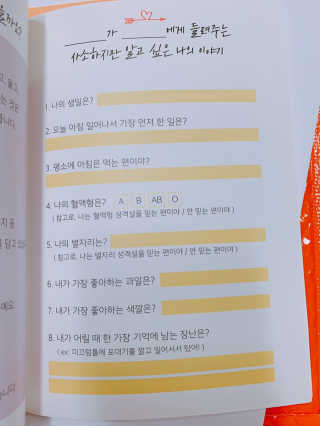 ______가 ______에게 들려주는
사소하지만 알고 싶은 나의 이야기
1. 나의 생일은?
2. 오늘 아침 일어나서 가장 먼저 한 일은?
3. 평소에 아침은 먹는 편이야?
4. 나의 혈액형은? A B AB O
( 참고로, 나는 혈액형 성격설을 믿는 편이야 / 안 믿는 편이야 )
5. 나의 별자리는?
( 참고로, 나는 별자리 성격설을 믿는 편이야 / 안 믿는 편이야 )
6. 내가 가장 좋아하는 과일은?
7. 내가 가장 좋아하는 색깔은?
8. 내가 어릴 때 한 가장 기억에 남는 장난은?
( ex. 미끄럼틀에 포대기를 깔고 일어서서 탔어! )